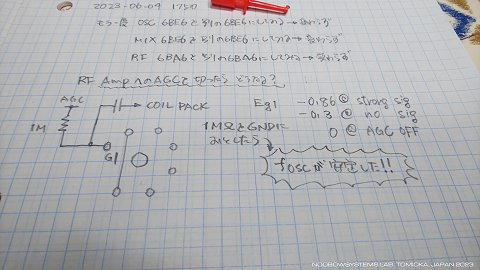 2023-06-04 1750
もう一度 OSC 6BE6を別の6BE6にしてみる→変わらず
MIX 6BE6を別の6BE6にしてみる→変わらず
RF 6BA6を別の6BA6にしてみる→変わらず
RF AmpへのAGCを切ったら どうなる?
AGC
COIL PACK
1M
G1
1MΩをGNDに
おとしたら
Eg1 -0.86 @ strong sig
-0.3 @ no sig
0 @ AGC OFF
foscが安定した!!
NOOBOWSYSTEMS LAB. TOMIOKA, JAPAN 2023